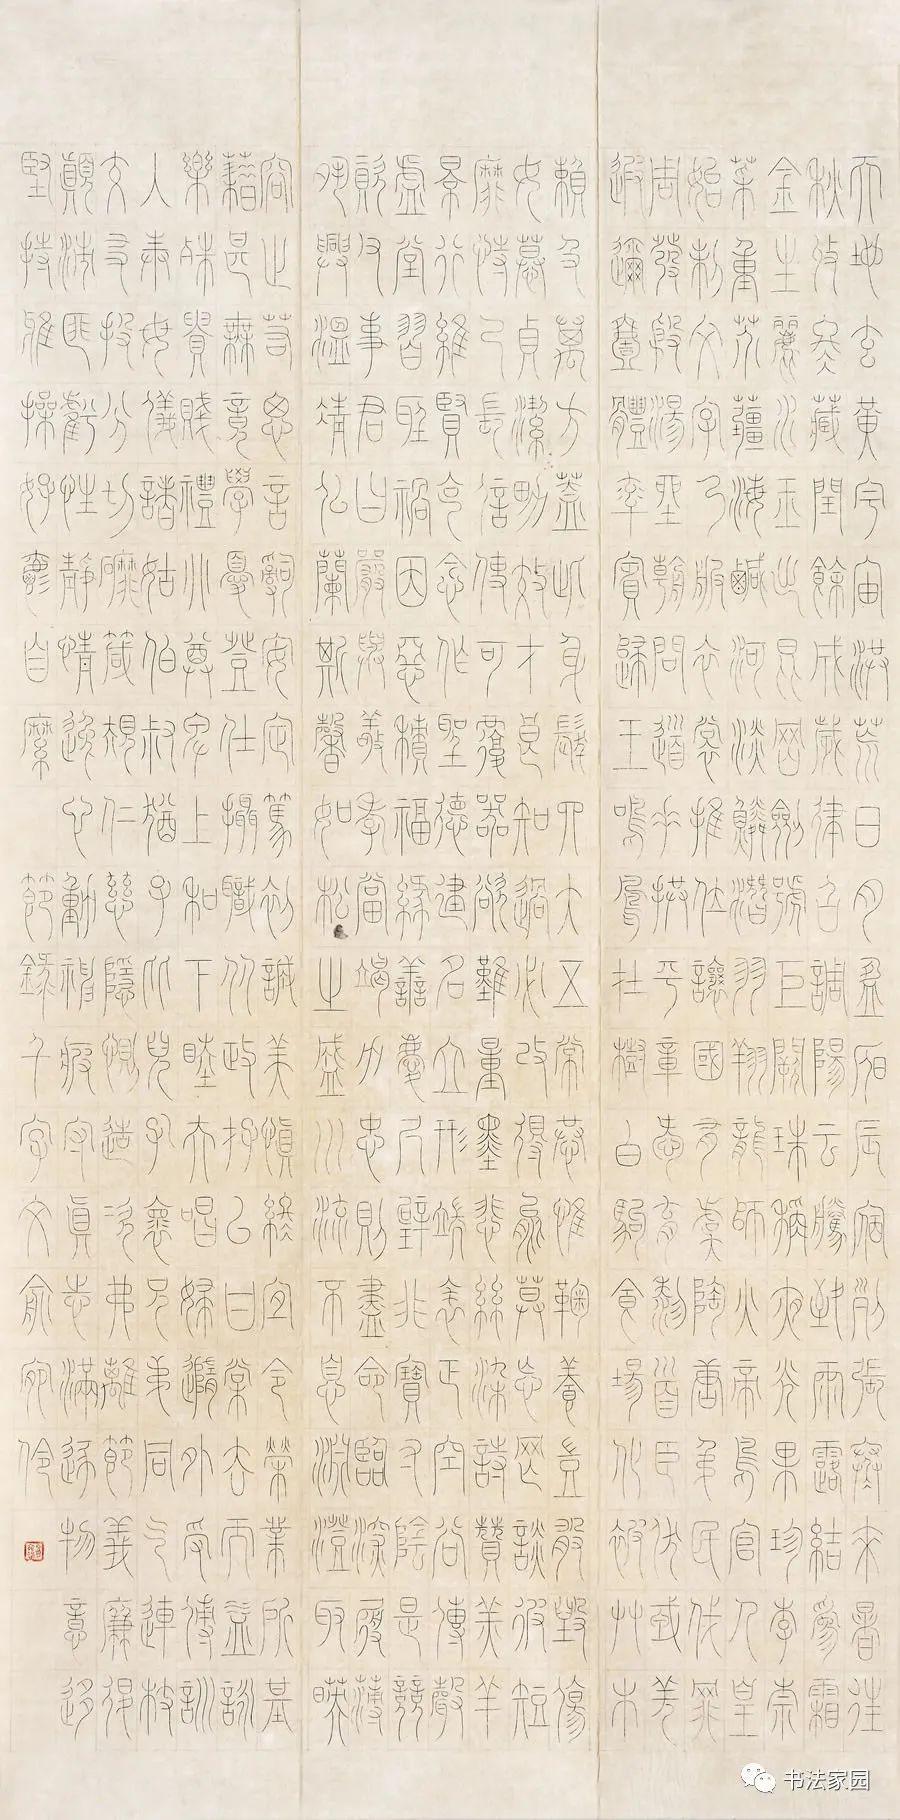 天地玄黃宇宙洪荒日月盈昃辰宿列張寒來暑往
秋收冬藏閏餘成歲律呂調陽云騰致雨露結為霜
金生麗水玉出昆岡劍號巨闕珠稱夜光果珍李柰
菜重芥薑海鹹河淡鱗潛羽翔龍師火帝鳥官人皇
始制文字乃服衣裳推位讓國有虞陶唐弔民伐罪
周發殷湯坐朝問道垂拱平章愛育黎首臣伏戎羌
遐邇壹體率賓歸王鳴鳳在樹白駒食場化被草木
賴及萬方蓋此身髮四大五常恭惟鞠養豈敢毀傷
女慕貞潔男效才良知過必改得能莫忘罔談彼短
靡恃己長信使可覆器欲難量墨悲絲染詩贊羔羊
景行維賢克念作聖德建名立形端表正空谷傳聲
虛堂習聽禍因惡積福緣善慶尺璧非寶寸陰是競
資父事君曰嚴與敬孝當竭力忠則盡命臨深履薄
夙興溫凊似蘭斯馨如松之盛川流不息淵澄取映
容止若思言辭安定篤初誠美慎終宜令榮業所基
藉甚無竟學優登仕攝職從政存以甘棠去而益詠
樂殊貴賤禮別尊卑上和下睦夫唱婦隨外受傅訓
入奉母儀諸姑伯叔猶子比兒孔懷兄弟同氣連枝
交友投分切磨箴規仁慈隱惻造次弗離節義廉退
顛沛匪虧性靜情逸心動神疲守真志滿逐物意移
堅持雅操好爵自縻 節錄千字文俞宛伶
书法家园